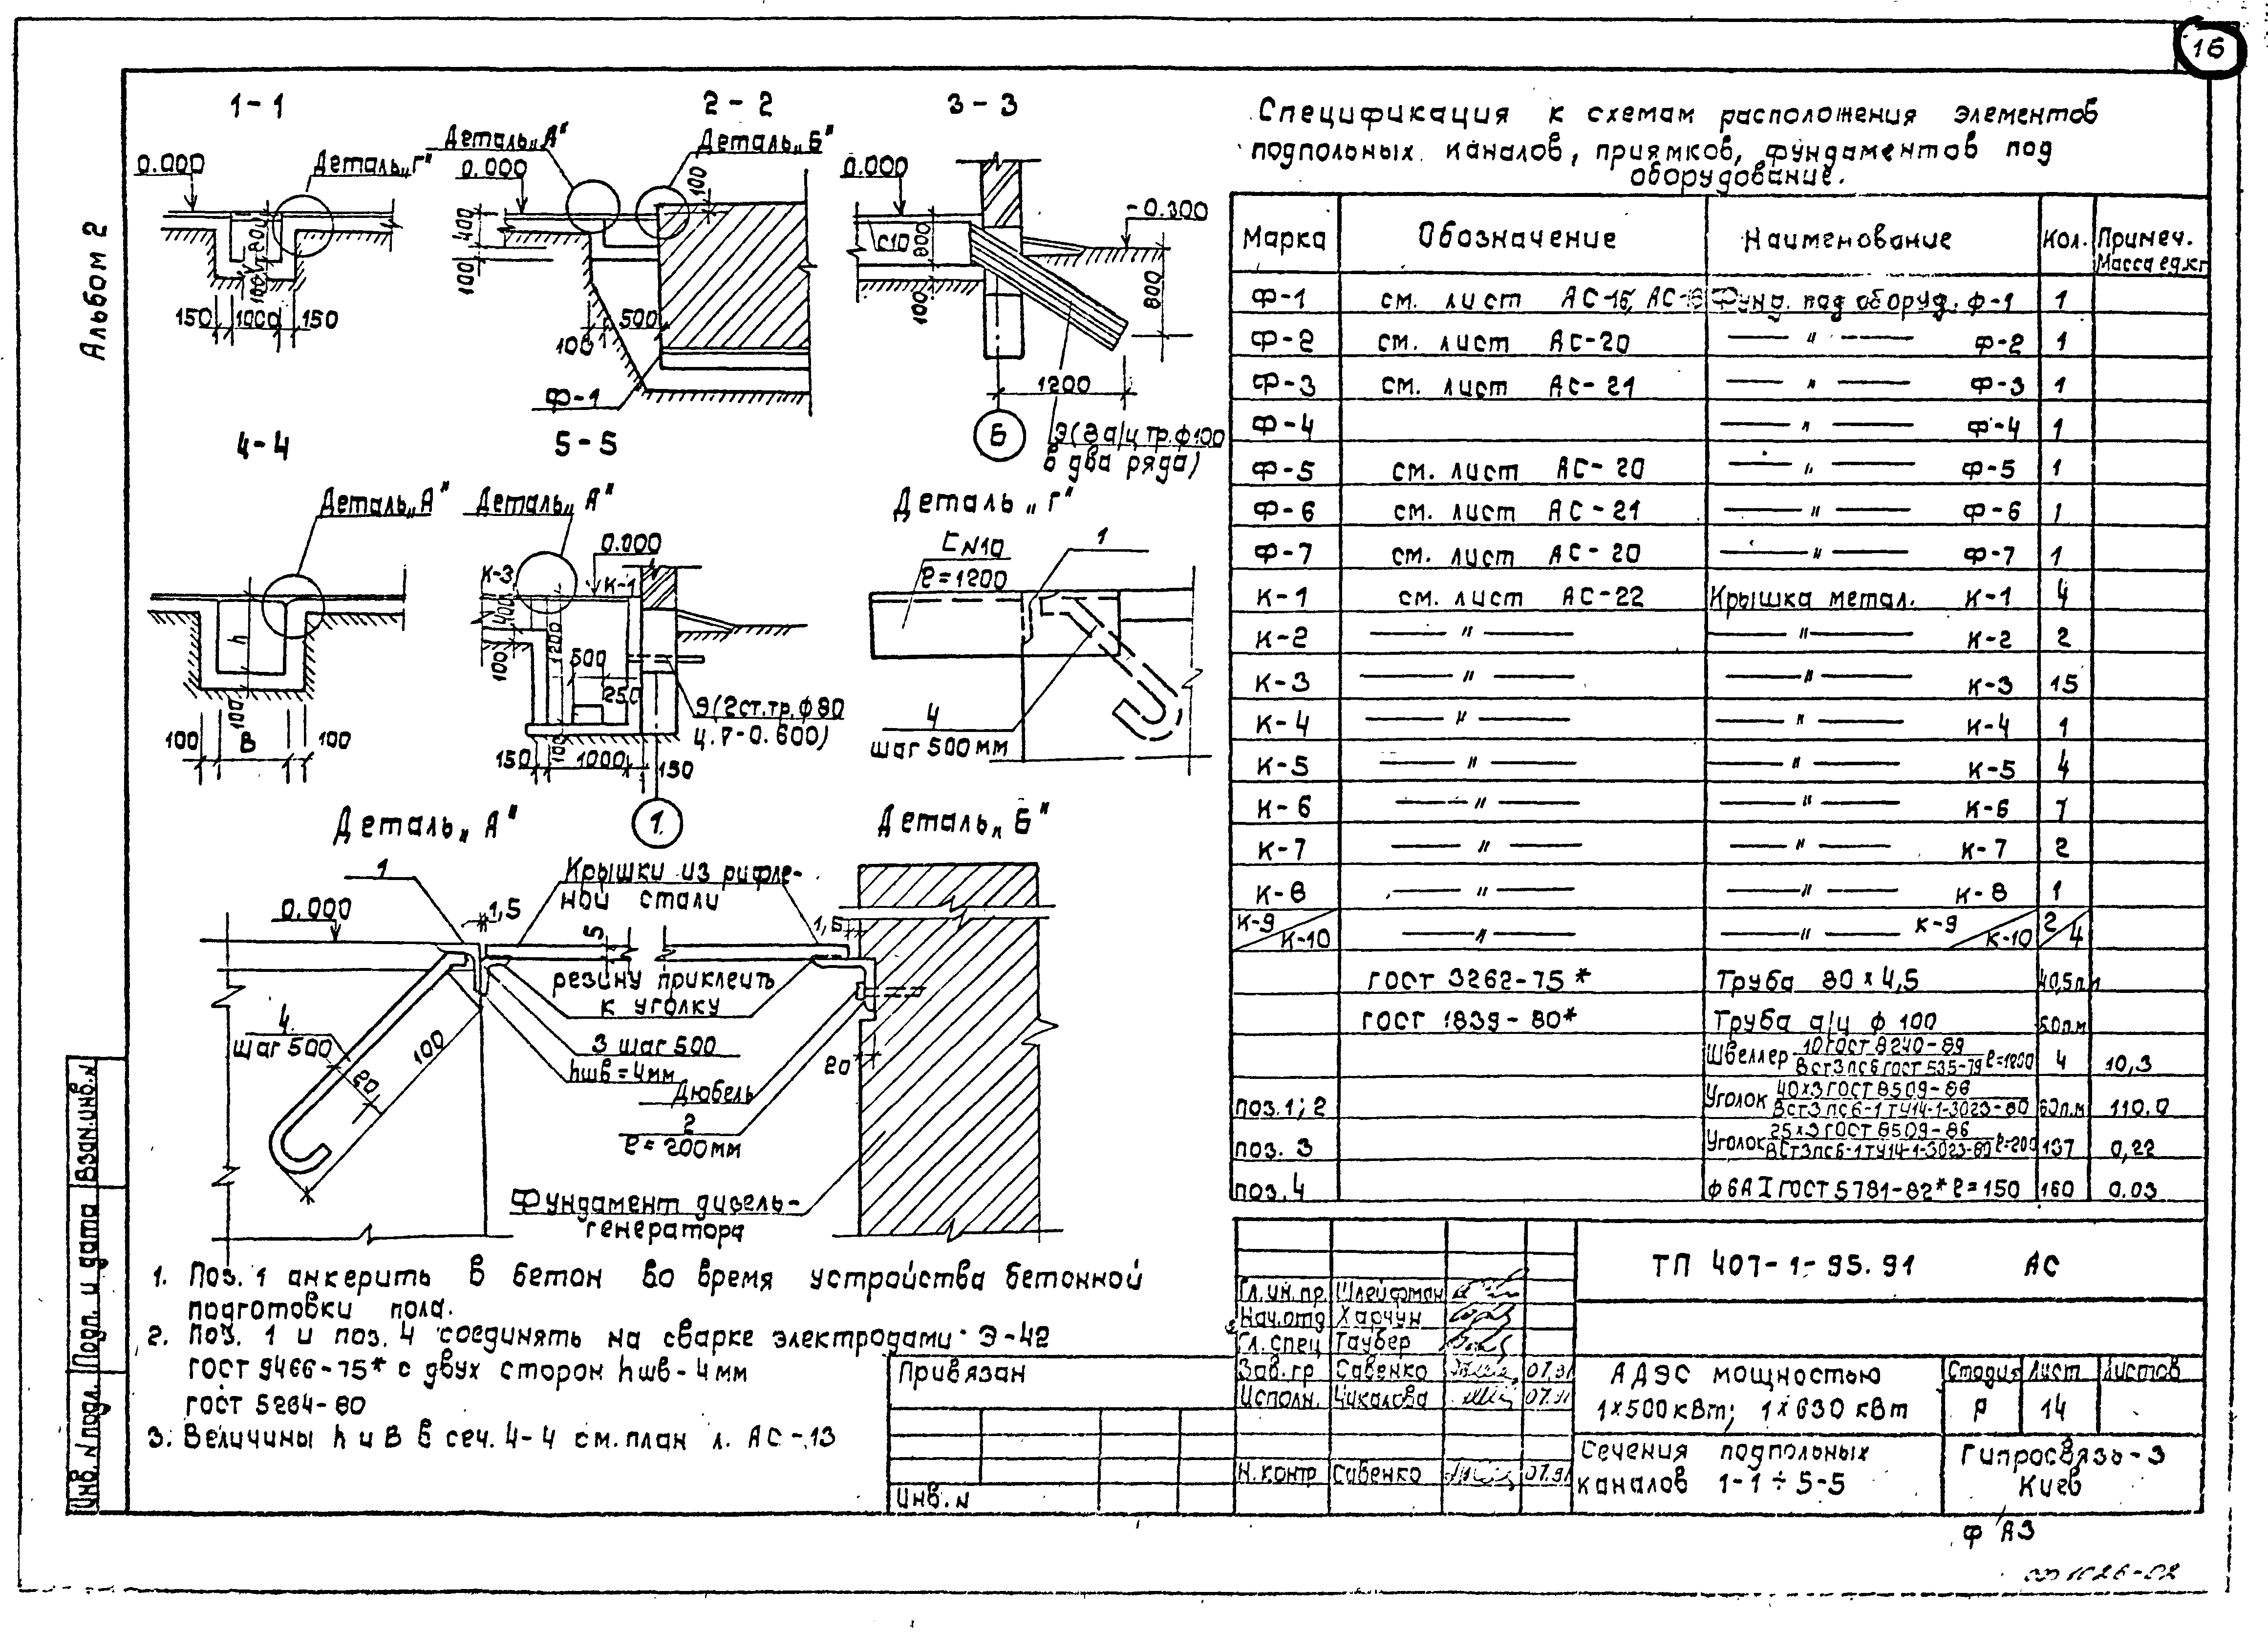 16
Альбом 2
1-1
Деталь „Г"
0.000
800
100
150 1000 150
2-2
Деталь „А"
Деталь „Б"
0.000
100
400
100
100
500
Ф-1
3-3
0.000
-0.300
С10
800
100
800
1200
Б
Э(8 а/ц тр. ф100
в два ряда)
4-4
Деталь „А"
h
100
100 В 100
5-5
Деталь „А"
0.000
К-3
К-1
400
100
1200
500
250
100
150 1000 150
Э(2 ст. тр. ф80
ц.т-0.600)
1
Деталь „Г"
С N10
ℓ=1200
1
4
шаг 500 мм
Деталь „А"
1
0.000
1,5
Крышки из рифле-
ной стали
5
резину приклеить
к уголку
4
шаг 500
100
20
3 шаг 500
hшв=4мм
Дюбель
2
ℓ=200мм
Деталь „Б"
1,5
20
Фундамент дизель-
генератора
1. Поз. 1 анкерить в бетон во время устройства бетонной
подготовки пола.
2. Поз. 1 и поз. 4 соединять на сварке электродами Э-42
ГОСТ 9466-75* с двух сторон hшв-4мм
ГОСТ 5264-80
3. Величины h и В в сеч. 4-4 см. план л. АС-13
Спецификация к схемам расположения элементов
подпольных каналов, приямков, фундаментов под
оборудование.
Марка Обозначение Наименование Кол. Примеч.
Масса ед.кг
Ф-1 см. лист АС-15, АС- Фунд. под оборуд. Ф-1 1
Ф-2 см. лист АС-20 — " — Ф-2 1
Ф-3 см. лист АС-21 — " — Ф-3 1
Ф-4 — " — Ф-4 1
Ф-5 см. лист АС-20 — " — Ф-5 1
Ф-6 см. лист АС-21 — " — Ф-6 1
Ф-7 см. лист АС-20 — " — Ф-7 1
К-1 см. лист АС-22 Крышка метал. К-1 4
К-2 — " — — " — К-2 2
К-3 — " — — " — К-3 15
К-4 — " — — " — К-4 1
К-5 — " — — " — К-5 4
К-6 — " — — " — К-6 1
К-7 — " — — " — К-7 2
К-8 — " — — " — К-8 1
К-9/К-10 — " — — " — К-9/К-10 2/4
ГОСТ 3262-75* Труба 80×4,5 40,5п.м
ГОСТ 1839-80* Труба а/ц ф 100 50п.м
Швеллер 10 ГОСТ 8240-89 / ВСт3пс6 ГОСТ 535-79 ℓ=1200 4 10,3
поз.1; 2 Уголок 40×3 ГОСТ 8509-86 / ВСт3пс6-1 ТУ14-1-3023-80 60п.м 110.0
поз. 3 Уголок 25×3 ГОСТ 8509-86 / ВСт3пс6-1 ТУ14-1-3023-80 ℓ=200 137 0,22
поз. 4 ф6АI ГОСТ 5781-82* ℓ=150 160 0.03
ТП 407-1-95.91 АС
Гл.ин.пр. Шлейфман
Нач.отд Харчун
Гл.спец Таубер
Зав.гр Савенко 07.91
Исполн. Чикалова 07.91
Н.контр Савенко 07.91
АДЭС мощностью
1×500кВт; 1×630 кВт
Стадия Лист Листов
Р 14
Сечения подпольных
каналов 1-1÷5-5
Гипросвязь-3
Киев
Привязан
Инв. N
Инв. N подл. Подп. и дата Взам.инв.N
Ф А3